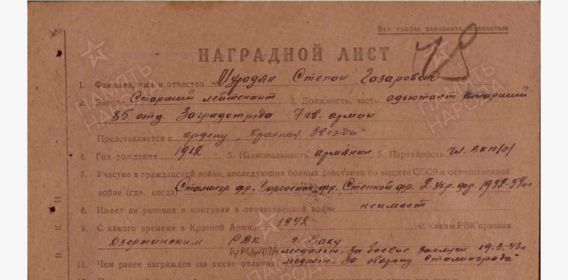 Все графы заполнять полностью
НАГРАДНОЙ ЛИСТ
1. Фамилия, имя и отчество Мурадян Степан Газарович
2. Звание Старший лейтенант 3. Должность, часть адъютант старший
85 отд. Заградотряда 7 гв. армии
Представляется к ордену "Красная Звезда"
4. Год рождения 1912 5. Национальность армянин 6. Партийность чл. ВКП(б)
7. Участие в гражданской войне, последующих боевых действиях по защите СССР и отечественной
войне (где, когда) Сталингр. фр. Степной фр. 2 Укр. фр.
8. Имеет ли ранения и контузии в отечественной войне не имеет
9. С какого времени в Красной Армии 1942 10. Каким РВК призван
Дзержинским РВК г. Баку
медалью "За боевые заслуги"
11. Чем ранее награжден (за какие отличия) медаль "За оборону Сталинграда"
ПАМЯТЬ НАРОДА